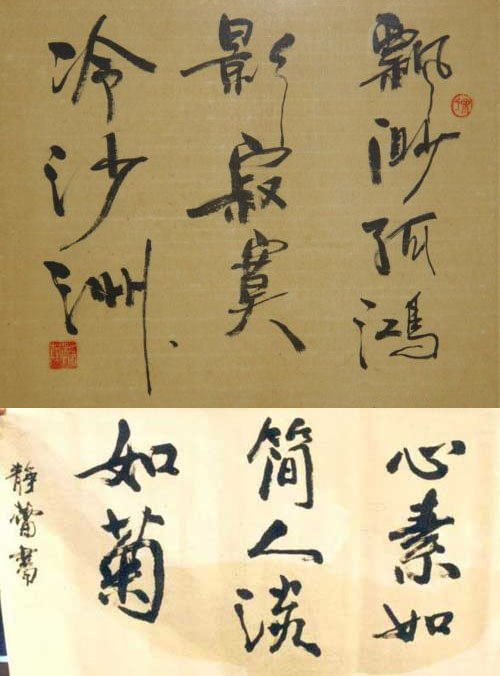 飄渺孤鴻
影寂寞
冷沙洲
心素如
简人淡
如菊
静蕾書